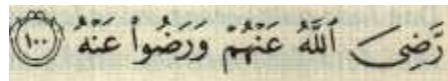 رَّضِيَ ٱللَّهُ عَنۡهُمۡ وَرَضُواْ عَنۡهُ ١٠٠